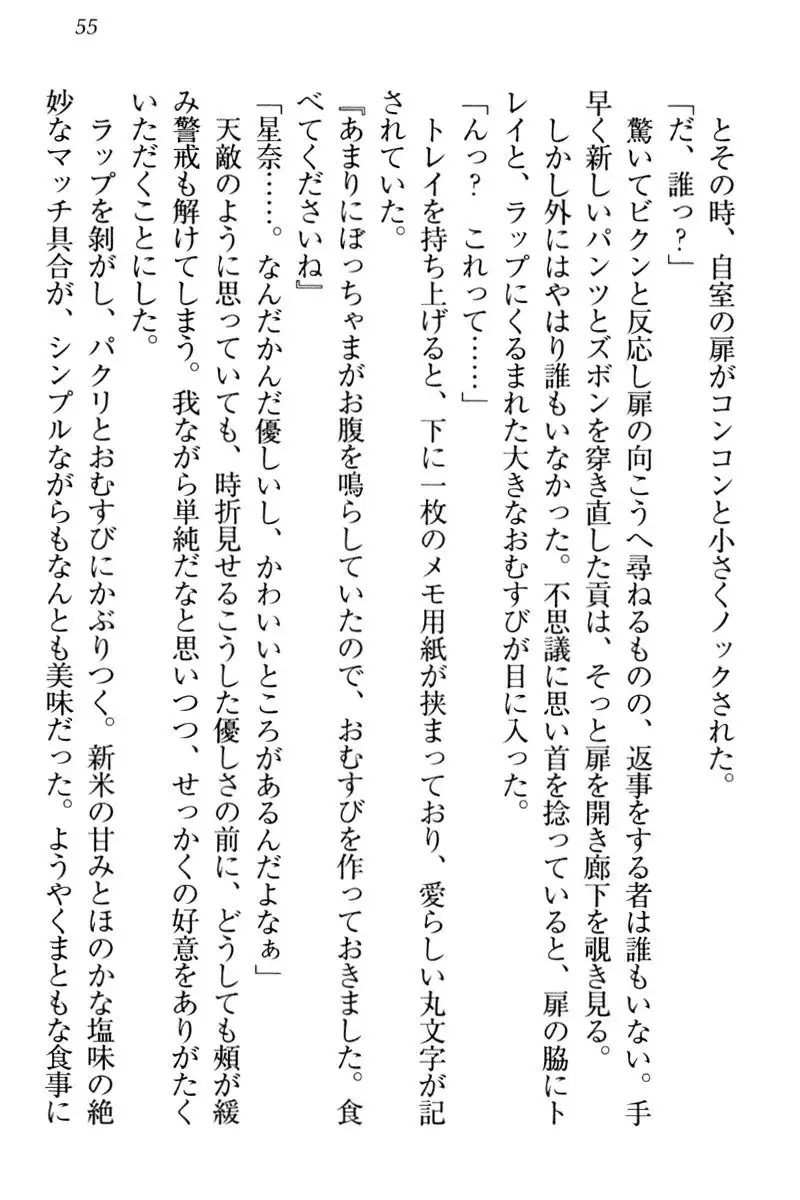 55
とその時、自室の扉がコンコンと小さくノックされた。
「だ、誰っ？」
驚いてビクンと反応し扉の向こうへ尋ねるものの、返事をする者は誰もいない。手
早く新しいパンツとズボンを穿き直した貢は、そっと扉を開き廊下を覗き見る。
しかし外にはやはり誰もいなかった。不思議に思い首を捻っていると、扉の脇にト
レイと、ラップにくるまれた大きなおむすびが目に入った。
「んっ？　これって……」
トレイを持ち上げると、下に一枚のメモ用紙が挟まっており、愛らしい丸文字が記
されていた。
『あまりにぼっちゃまがお腹を鳴らしていたので、おむすびを作っておきました。食
べてくださいね』
「星奈……。なんだかんだ優しいし、かわいいところがあるんだよなぁ」
天敵のように思っていても、時折見せるこうした優しさの前に、どうしても頬が緩
み警戒も解けてしまう。我ながら単純だなと思いつつ、せっかくの好意をありがたく
いただくことにした。
ラップを剝がし、パクリとおむすびにかぶりつく。新米の甘みとほのかな塩味の絶
妙なマッチ具合が、シンプルながらもなんとも美味だった。ようやくまともな食事に